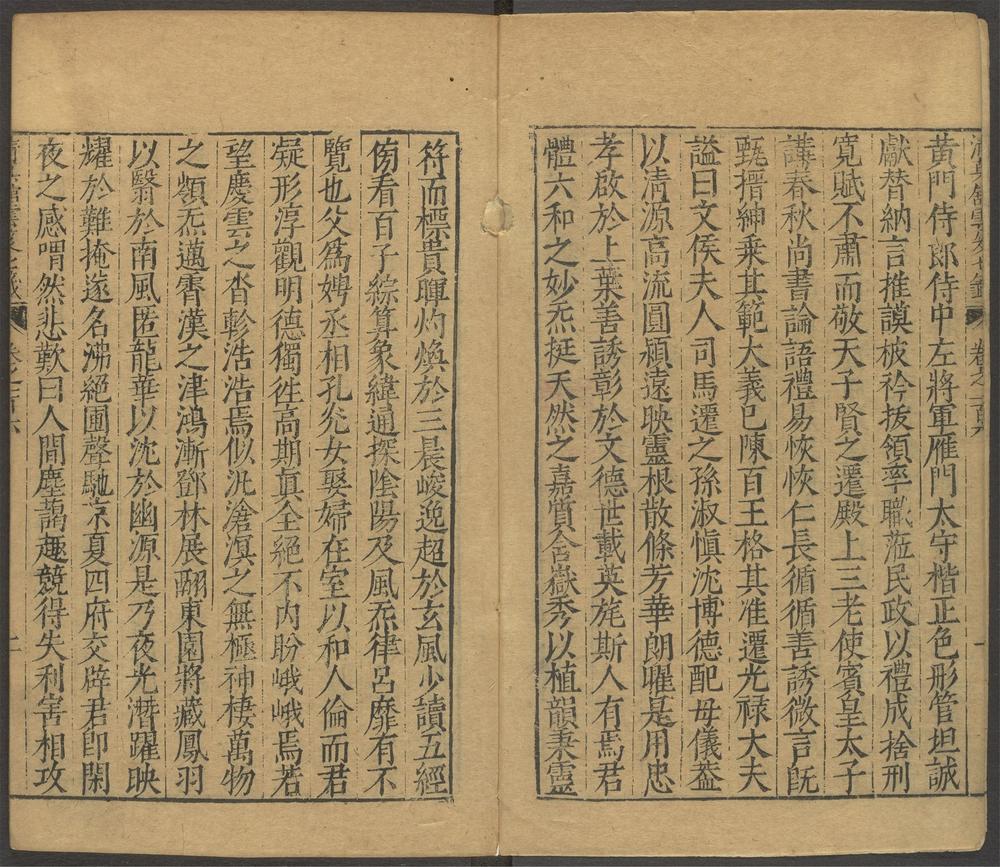 黃門侍郎侍中左將軍雁門太守楷正色形管坦誠
獻替納言推謨披衿拔領率職蒞民政以禮成捨刑
寬賦不肅而敬天子賢之遷殿上三老使賓皇太子
講春秋尚書論語禮易恢恢仁長循循善誘微言旣
甄搢紳乗其範大義已陳百王格其准遷光祿大夫
謚曰文侯夫人司馬遷之孫淑慎沈博德配母儀蓋
以清源高流圓潁遠映靈根散條芳華朗曜是用忠
孝啟於上葉善誘彰於文德世載英旄斯人有焉君
體六和之妙炁挺天然之嘉質含嶽秀以植韻秉靈
符而標貴暉灼煥於三晨峻逸超於玄風少讀五經
傍看百子綜算象緯通探陰陽及風炁律呂靡有不
覽也父爲娉丞相孔光女娶婦在室以和人倫而君
凝形淳觀明德獨徃高期真全絕不内盼峨峨焉若
望慶雲之杳軫浩浩焉似汎滄溟之無極神棲萬物
之頫炁邁霄漢之津鴻漸鄧林展翮東園將藏鳳羽
以翳於南風匿龍華以沈於幽源是乃夜光潛躍映
耀於難掩遂名沸絕圃聲馳京夏四府交辟君卽閑
夜之感喟然悲歎曰人間塵藹趣競得失利害相攻